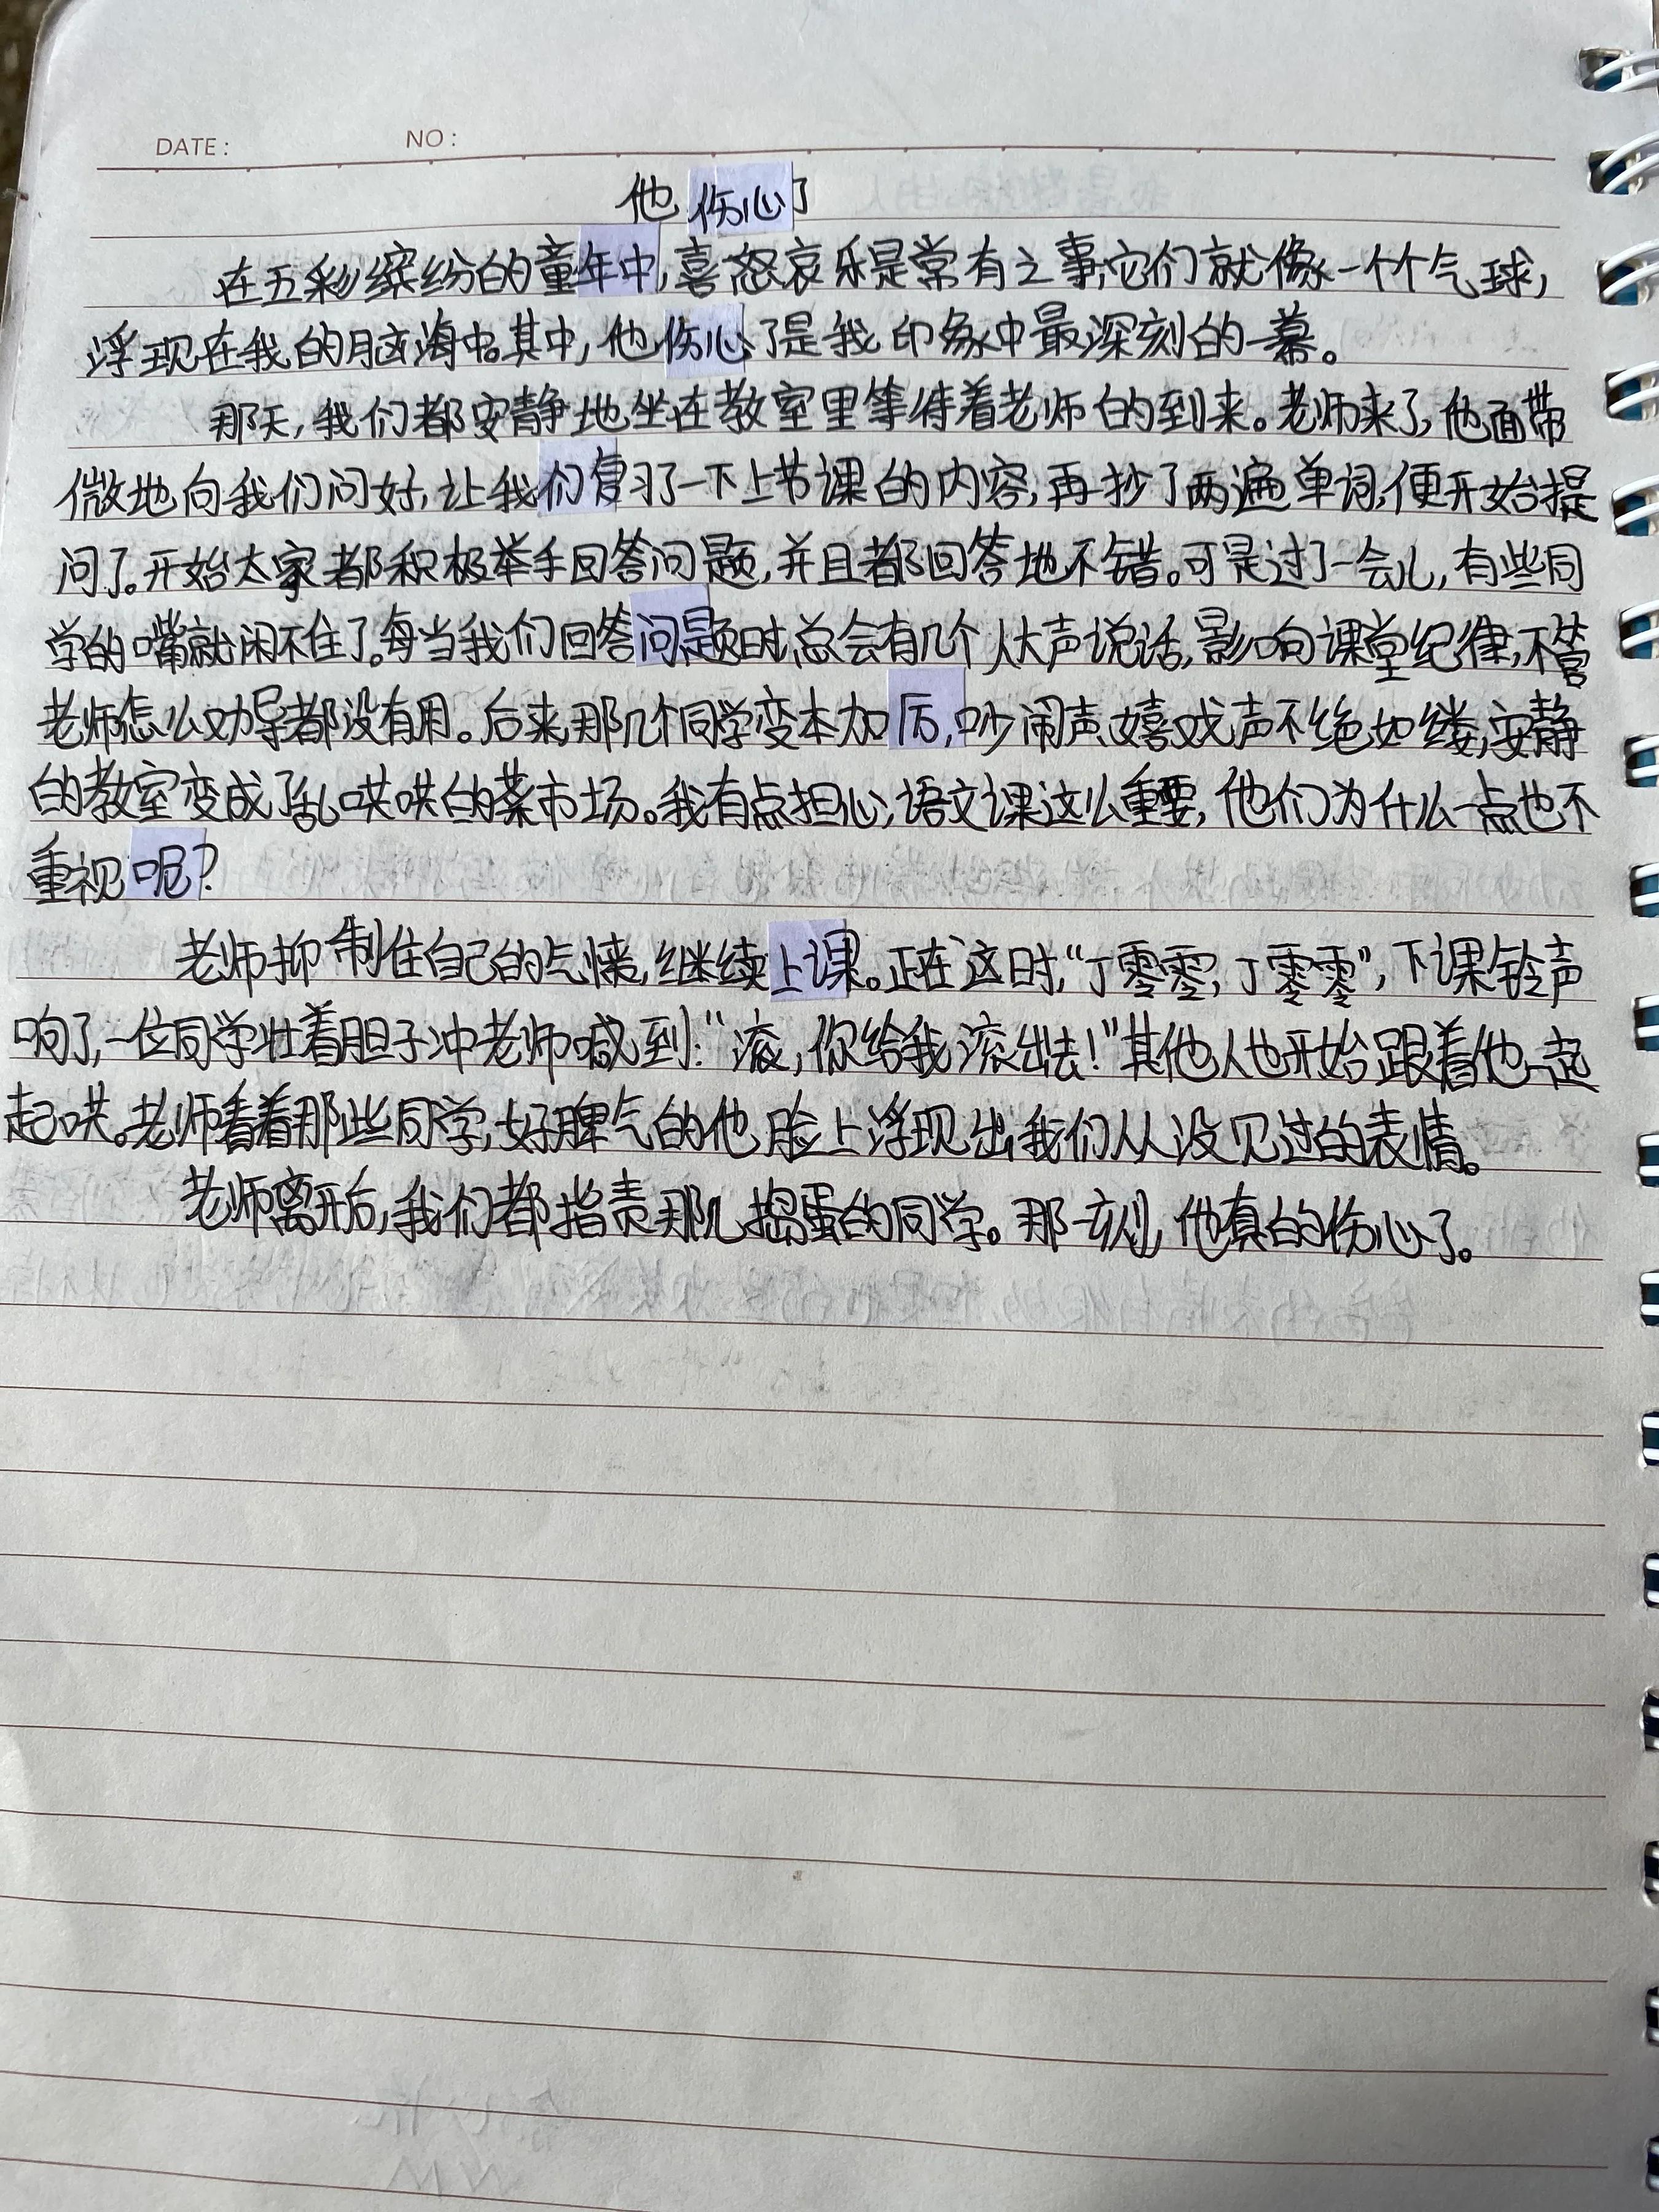 DATE: NO:
他伤心了
在五彩缤纷的童年中,喜怒哀乐是常有之事,它们就像一个个气球,
浮现在我的脑海中。其中,他伤心了是我印象中最深刻的一幕。
那天,我们都安静地坐在教室里等待着老师的到来。老师来了,他面带
微地向我们问好,让我们复习了一下上节课的内容,再抄了两遍单词,便开始提
问了。开始大家都积极举手回答问题,并且都回答地不错。可是过了一会儿,有些同
学的嘴就闲不住了。每当我们回答问题时,总会有几个人大声说话,影响课堂纪律,不管
老师怎么劝导都没有用。后来,那几个同学变本加厉,吵闹声、嬉戏声不绝如缕,安静
的教室变成了乱哄哄的菜市场。我有点担心,语文课这么重要,他们为什么一点也不
重视呢?
老师抑制住自己的气愤,继续上课。正在这时,“丁零零,丁零零”,下课铃声
响了,一位同学壮着胆子冲老师喊到:“滚,你给我滚出去!”其他人也开始跟着他一起
起哄。老师看着那些同学,好脾气的他脸上浮现出我们从没见过的表情。
老师离开后,我们都指责那几捣蛋的同学。那一刻,他真的伤心了。